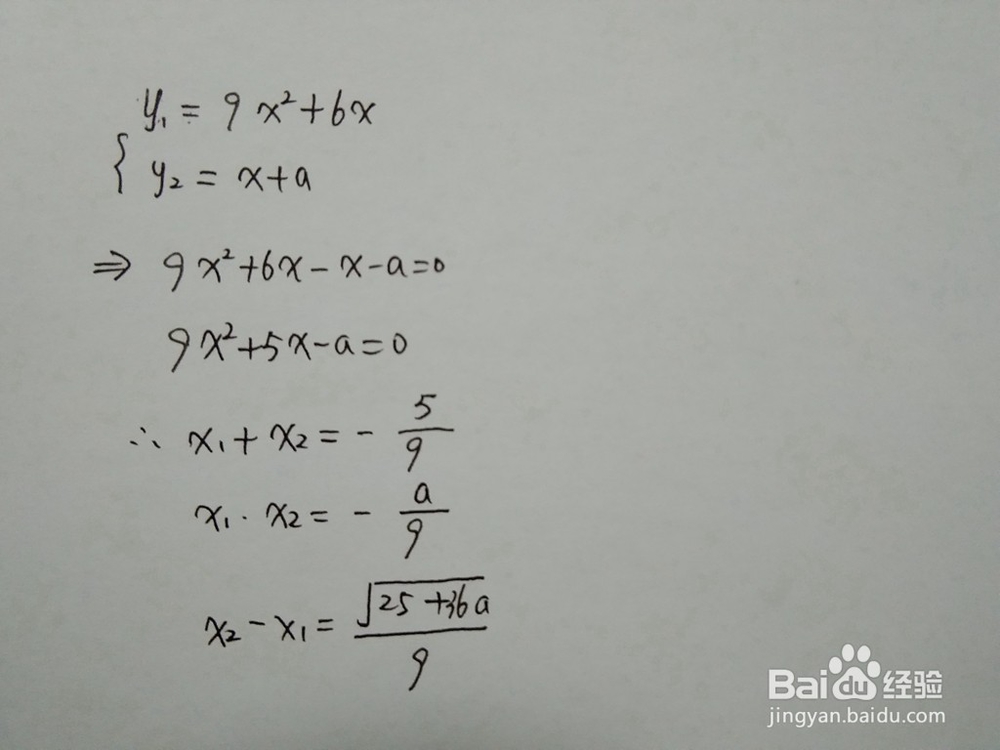 y₁ = 9x²+6x
{ y₂ = x+a
⇒ 9x²+6x-x-a=0
9x²+5x-a=0
∴ x₁+x₂=-5/9
x₁·x₂=-a/9
x₂-x₁=√(25+36a)/9
Baidu经验
jingyan.baidu.com